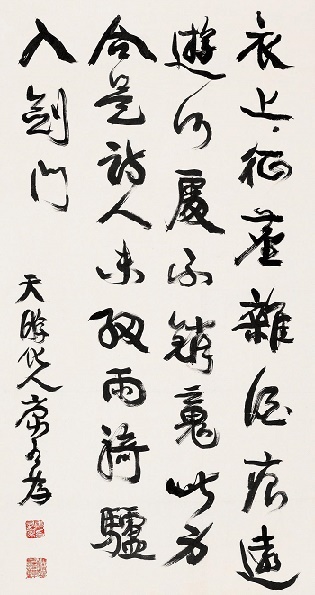 衣上征塵雜酒痕遠
遊何處不銷魂此身
合是詩人未細雨騎驢
入劍門
天游化人康有為